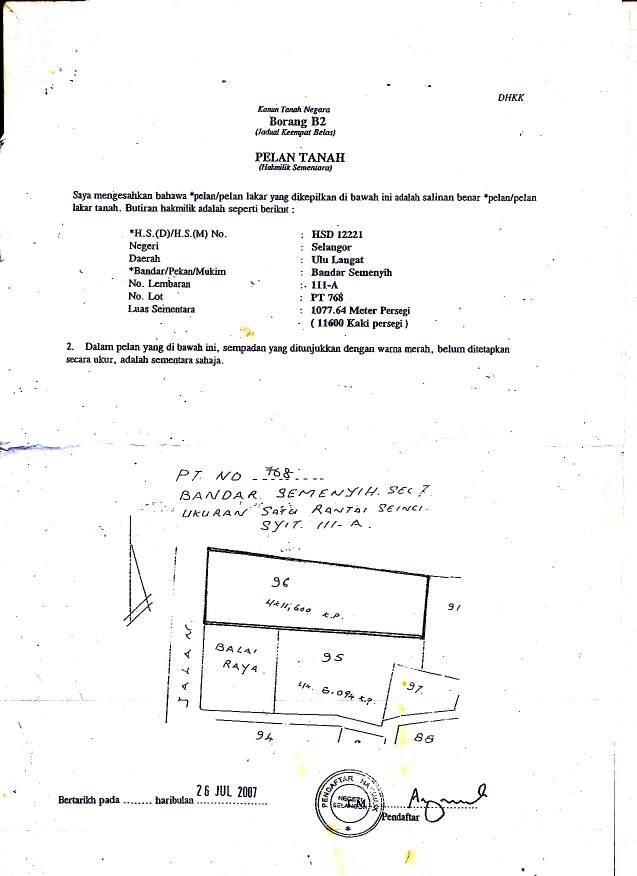 DHKK
Kanun Tanah Negara
Borang B2
(Jadual Keempat Belas)
PELAN TANAH
(Hakmilik Sementara)
Saya mengesahkan bahawa *pelan/pelan lakar yang dikepilkan di bawah ini adalah salinan benar *pelan/pelan
lakar tanah. Butiran hakmilik adalah seperti berikut :
*H.S.(D)/H.S.(M) No. : HSD 12221
Negeri : Selangor
Daerah : Ulu Langat
*Bandar/Pekan/Mukim : Bandar Semenyih
No. Lembaran : 111-A
No. Lot : PT 768
Luas Sementara : 1077.64 Meter Persegi
( 11600 Kaki persegi )
2. Dalam pelan yang di bawah ini, sempadan yang ditunjukkan dengan warna merah, belum ditetapkan
secara ukur, adalah sementara sahaja.
PT. NO 768
BANDAR SEMENYIH. SEC 7.
UKURAN SATU RANTAI SEINCI.
SYIT. III-A.
96
11,600 K.P.
91
JALAN
BALAI
RAYA.
95
8.094 K.P.
97.
94
88
Bertarikh pada ........ haribulan 26 JUL 2007
PENDAFTAR
NEGERI
SELANGOR
Pendaftar